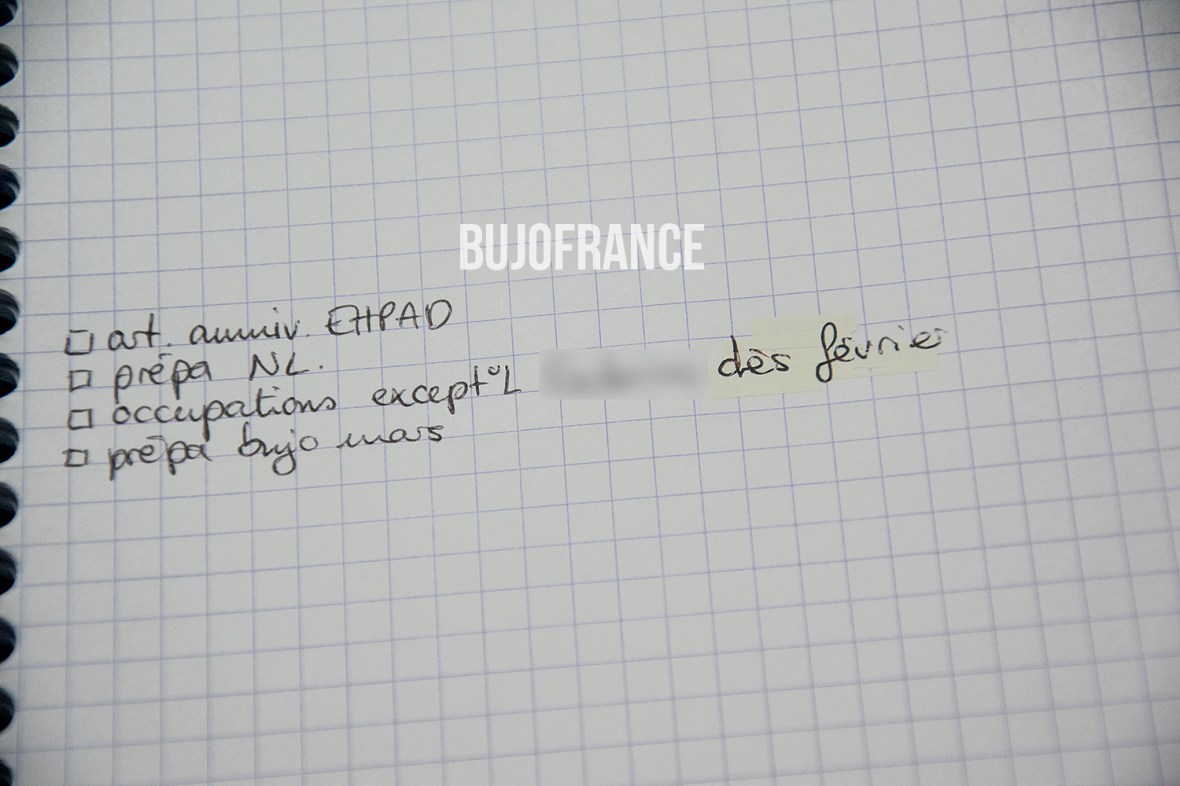 BUJOFRANCE
☐ art. anniv. EHPAD
☐ prépa NL.
☐ occupations except°L dès février
☐ prépa bujo mars